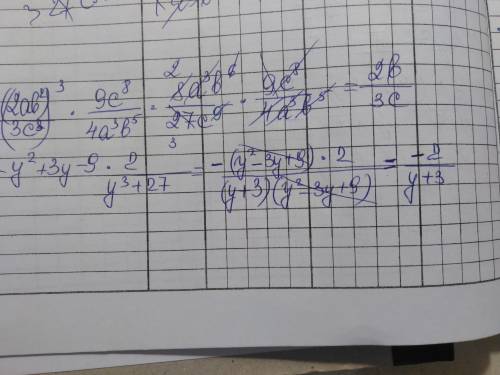 (2ab²/3c³)³ · 9c⁸/4a³b⁵ · 8a³b⁶/27c⁹ · 9c⁸/4a³b⁵ = 2b/3c
-y²+3y-9 · 2/y³+27 = -(y²-3y+9) · 2/(y+3)(y²-3y+9) = -2/y+3